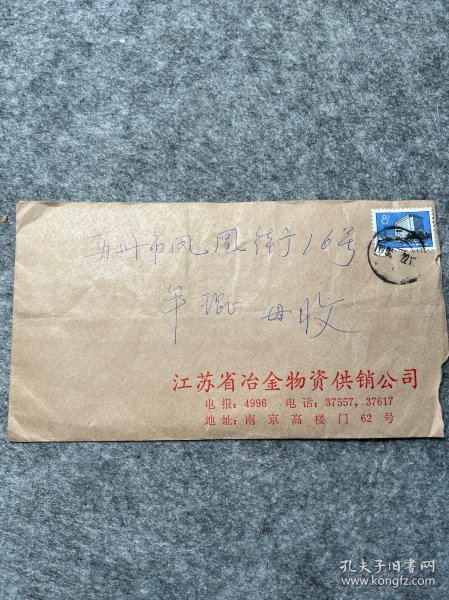 8
苏州市凤凰街16号
年 母收
江苏省冶金物资供销公司
电报：4996 电话：37557，37617
地址：南京高楼门62号
孔夫子旧书网
www.kongfz.com